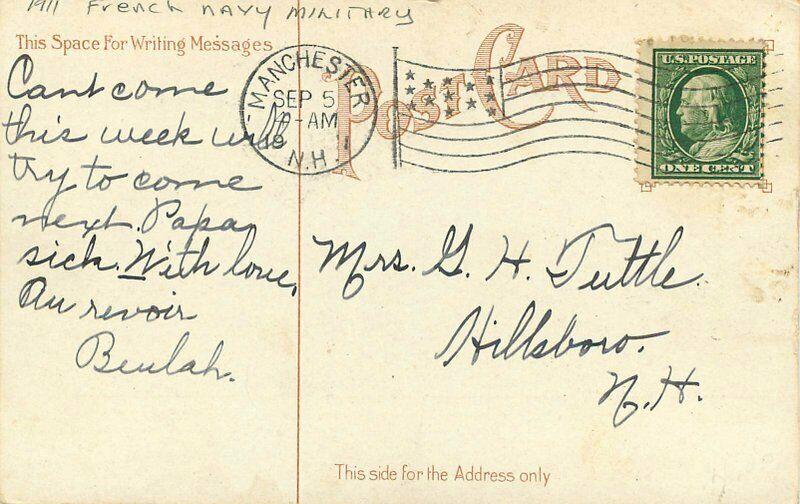 1911 French NAVY MILITARY
This Space For Writing Messages
POST CARD
Cant come
this week will
try to come
next. Papa
sick. With love,
Au revoir
Beulah.
MANCHESTER
SEP 5
-AM
19
N.H.
U.S. POSTAGE
ONE CENT
Mrs. G. H. Tuttle.
Hillsboro.
N.H.
This side for the Address only